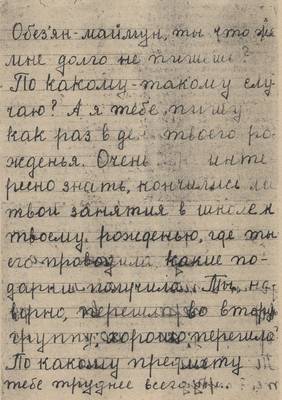 Обезян-маймун, ты что же
мне долго не пишешь?
По какому-такому слу
чаю? А я тебе пишу
как раз в де твоего ро
жденья. Очень инте
ресно знать, кончились ли
твои занятия в школе к
твоему рожденью, где ты
его проводила, какие по-
дарки получила. Ты, на
верно, перешла во вторую
группу, хорошо перешла?
По какому предмету
тебе труднее всего